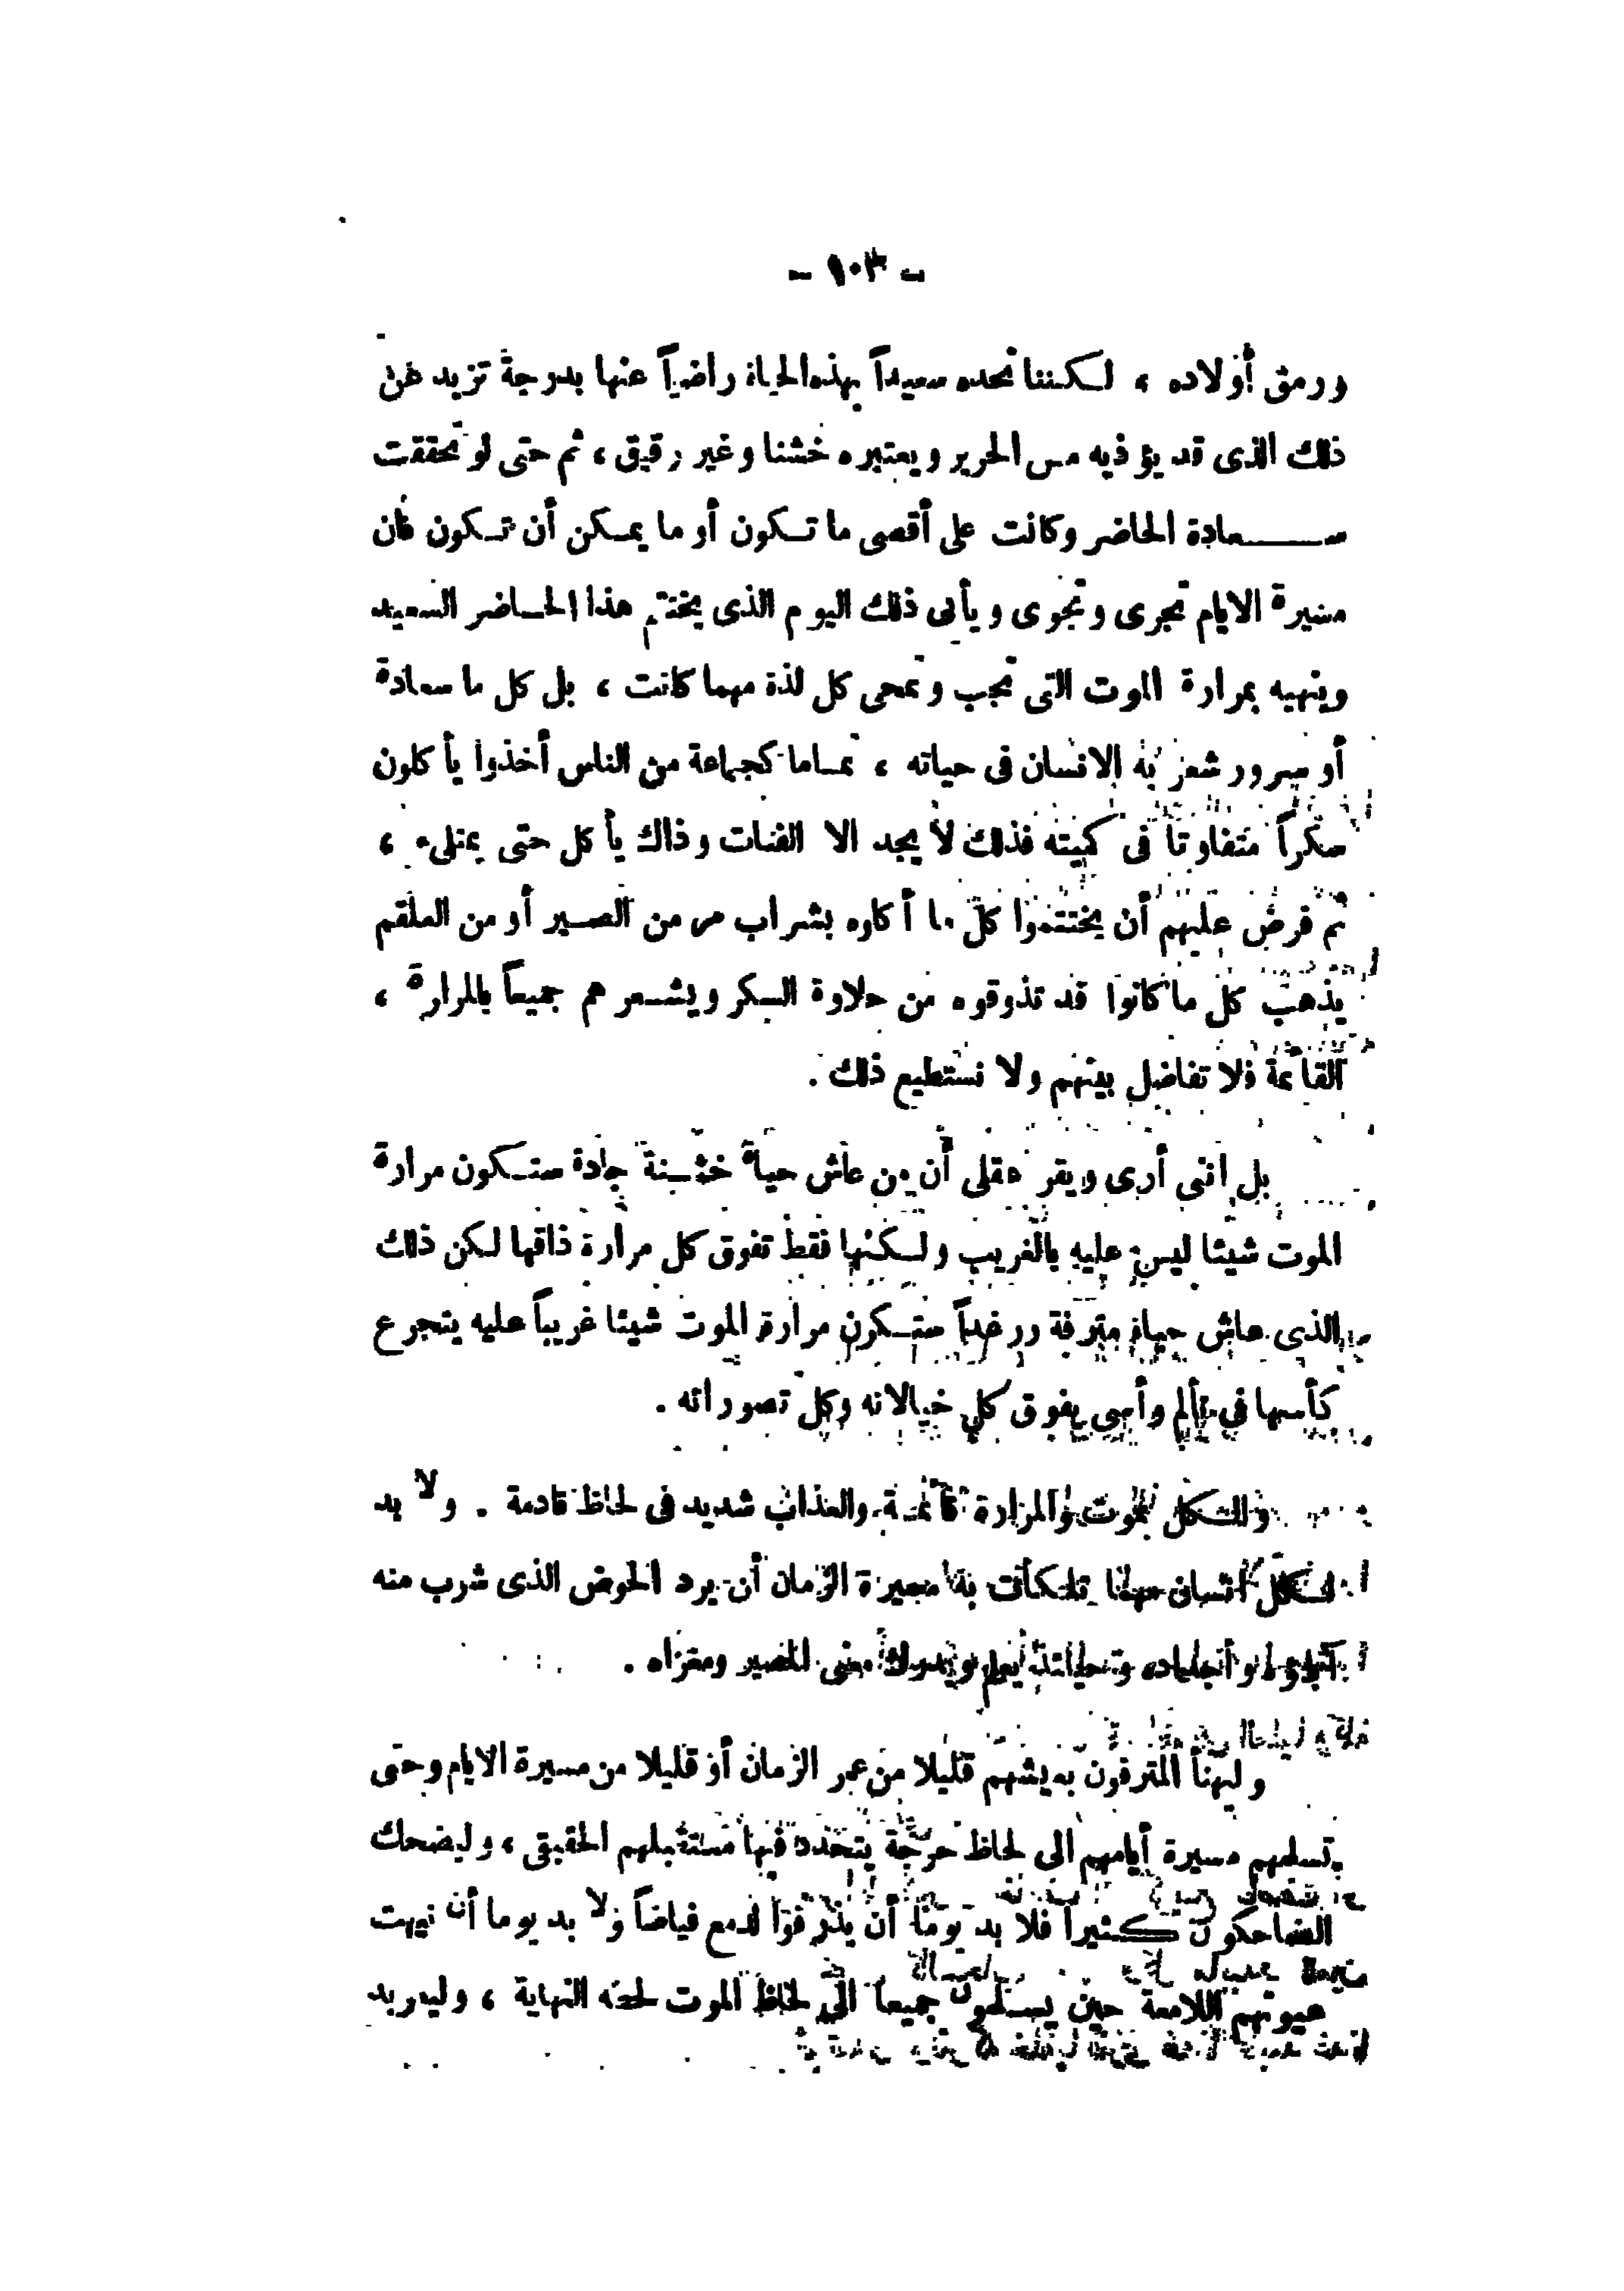 - ١٠٣ -
ورمق أولاده ، لكننا نجده سعيداً بهذه الحياة راضياً عنها بدرجة تزيد عن
ذلك الذى قد يؤذيه مس الحرير ويعتبره خشنا وغير رقيق ، ثم حتى لو تحققت
سعادة الحاضر وكانت على أقصى ما تكون أو ما يمكن أن تكون فان
مسيرة الايام تجرى وتجرى ويأتى ذلك اليوم الذى يختم هذا الحاضر السعيد
وينهيه بمرارة الموت التى تجب وتمحى كل لذة مهما كانت ، بل كل ما سعادة
أو سرور شعر به الانسان فى حياته ، تماما كجماعة من الناس أخذوا يأكلون
سكراً متفاوتا فى كميته فذلك لا يجد الا الفتات وذاك يأكل حتى يمتلىء ،
ثم فرض عليهم أن يختتموا كل ما أكلوه بشراب مر من الصبر أو من العلقم
يذهب كل ما كانوا قد تذوقوه من حلاوة السكر ويشعرهم جميعاً بالمرارة ،
القائمة فلا تفاضل بينهم ولا نستطيع ذلك .
بل اننى أرى ويقر عقلى أن من عاش حياة خشنة جادة ستكون مرارة
الموت شيئا ليس عليه بالغريب ولكنها فقط تفوق كل مرارة ذاقها لكن ذلك
الذى عاش حياة مترفة ورغداً ستكون مرارة الموت شيئا غريباً عليه يتجرع
كأسها في تألم وأسى يفوق كل خيالاته وكل تصوراته .
والكل يموت والمرارة قائمة والعذاب شديد فى لحاظ قادمة . ولا بد
لكل انسان مهما تلكأت به مسيرة الزمان أن يرد الحوض الذى شرب منه
وأجداده يعلم ويدرك معنى المصير ومغزاه .
وليهنأ المترفون بعيشهم قليلا من عمر الزمان أو قليلا من مسيرة الايام وحتى
تسلمهم مسيرة أيامهم الى لحاظ حرجة يتحدد فيها مستقبلهم الحقيقى ، وليضحك
الضاحكون كثيراً فلا بد يوما أن يذرفوا الدمع فياضاً ولا بد يوما أن تبهت
عيونهم اللامعة حين يسلمون جميعا الى لحاظ الموت لحظة النهاية ، وليعربد